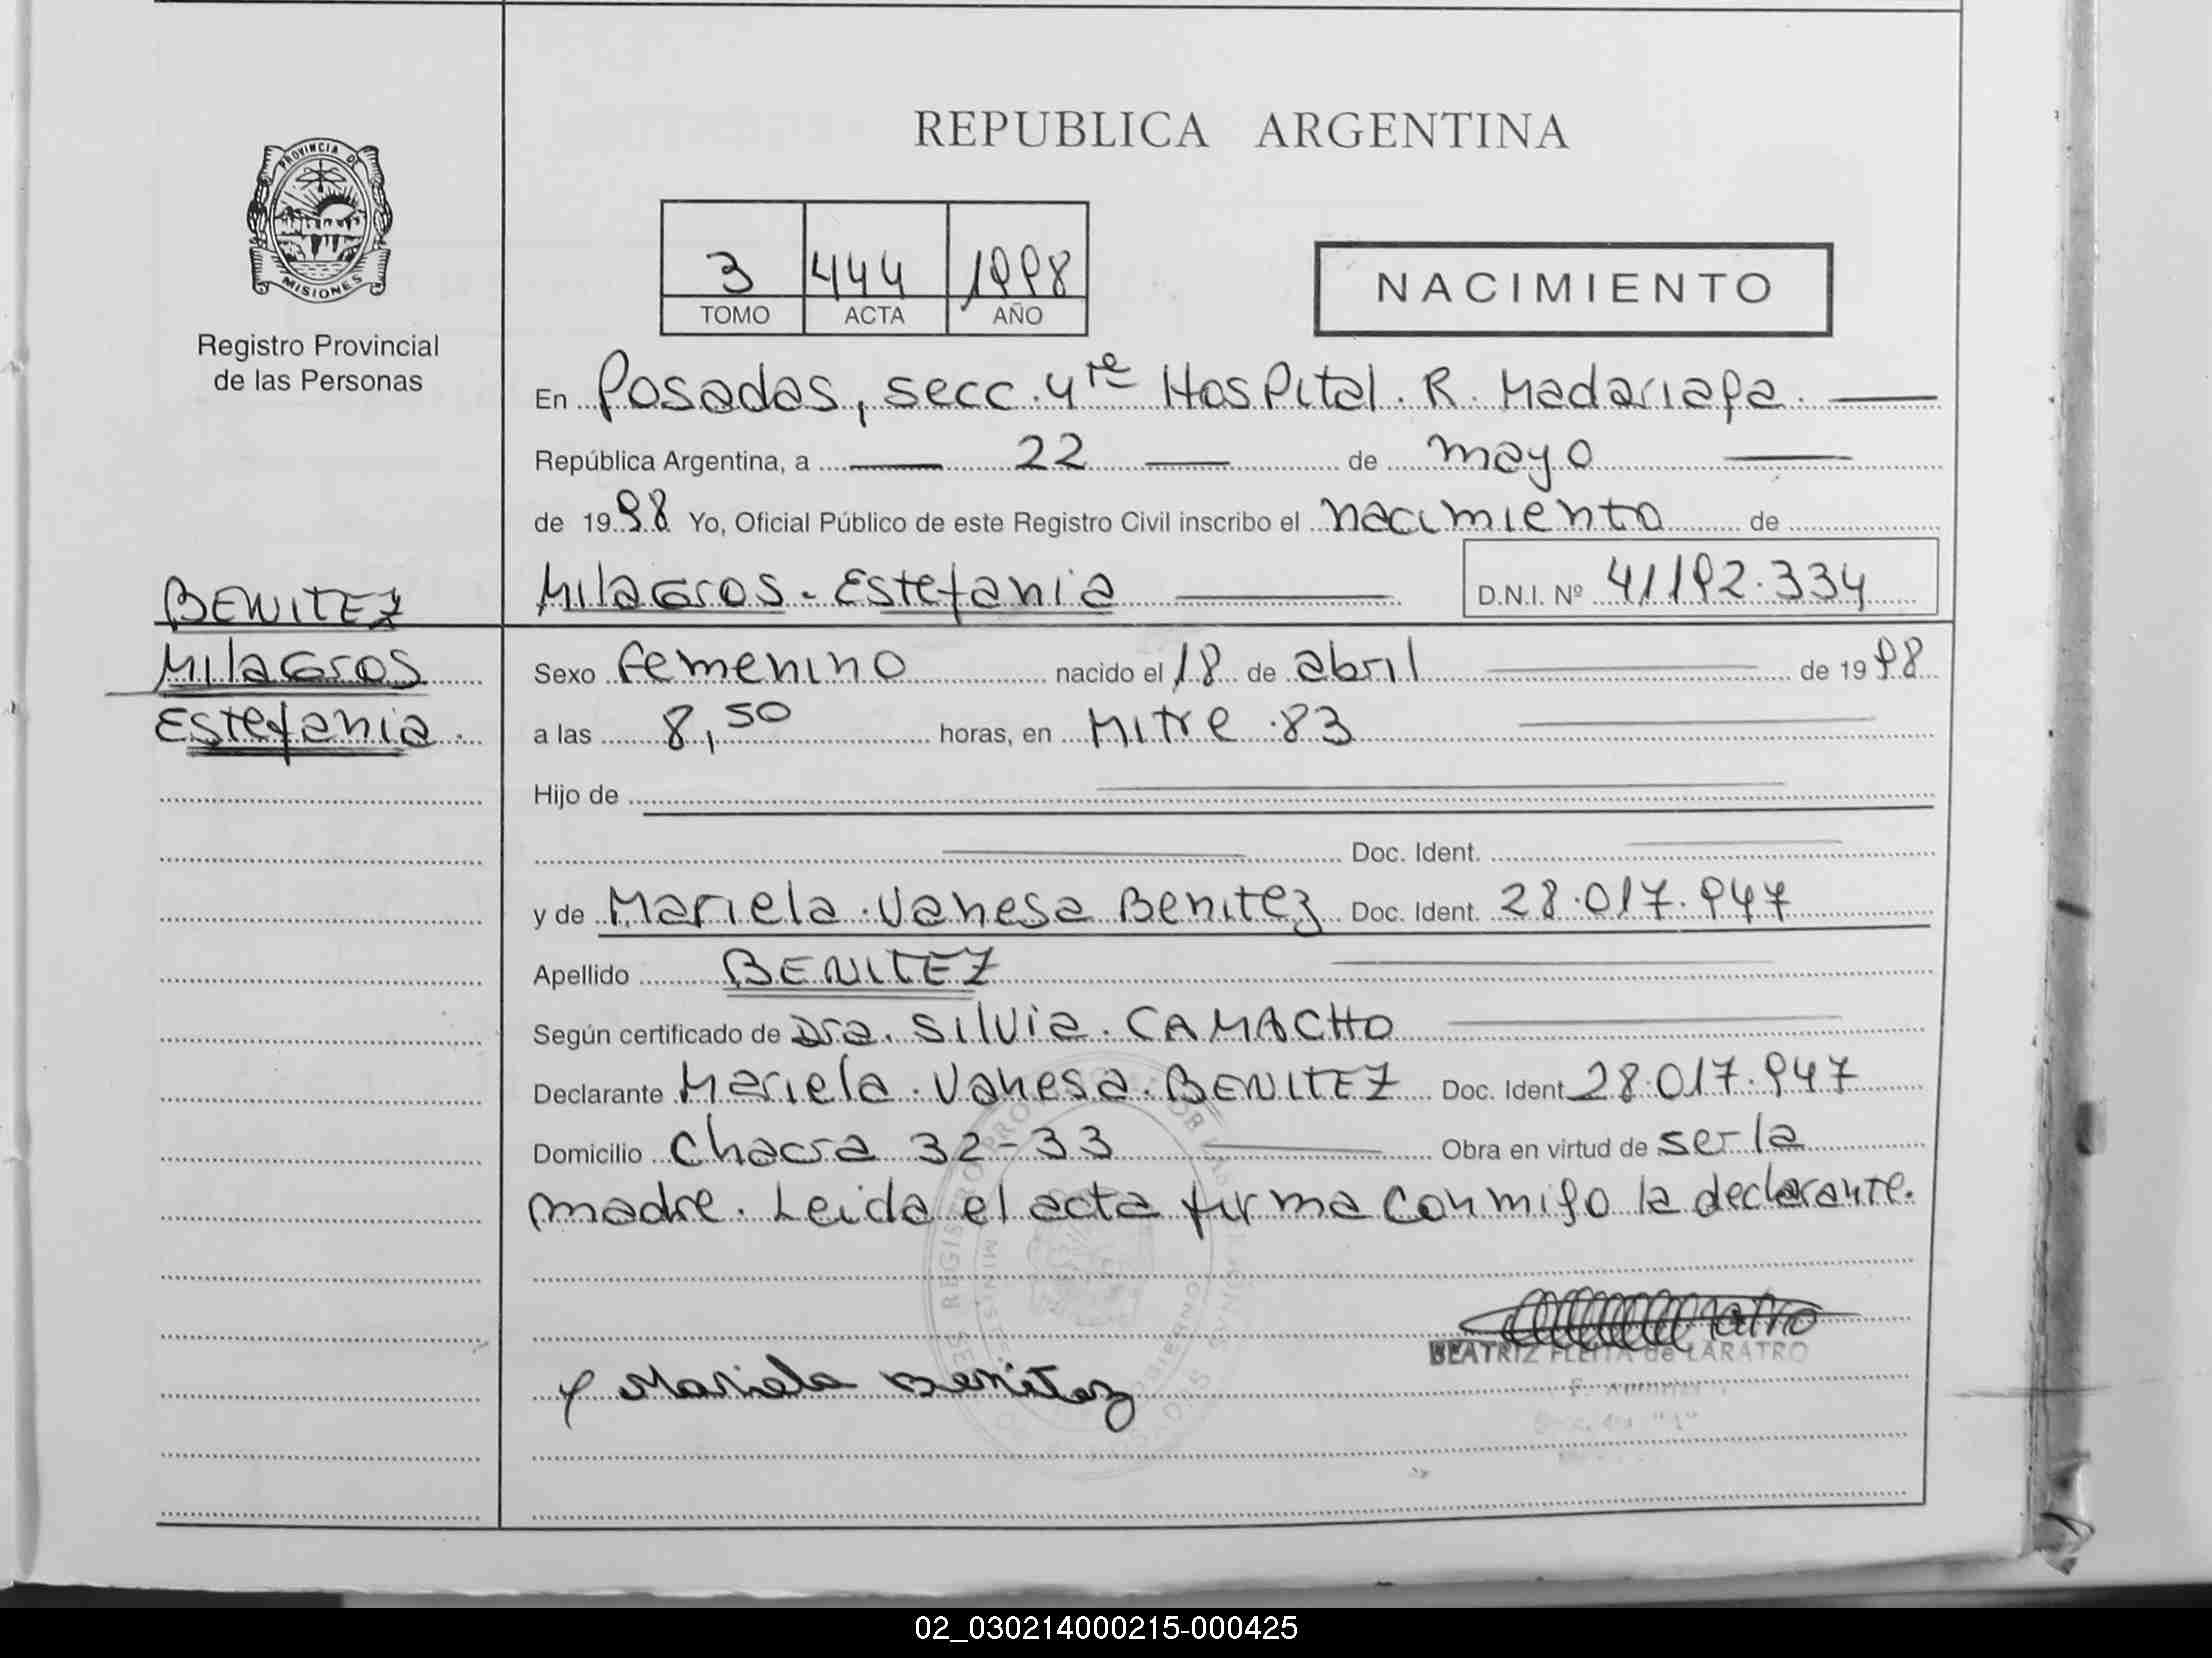 REPUBLICA ARGENTINA
PROVINCIA DE
MISIONES
Registro Provincial
de las Personas
3 444 1998
TOMO ACTA AÑO
NACIMIENTO
En Posadas, secc. 4ta Hospital. R. Madariaga.
República Argentina, a 22 de mayo
de 1998 Yo, Oficial Público de este Registro Civil inscribo el nacimiento de
Milagros - Estefania D.N.I. Nº 41192.334
BENITEZ
Milagros
Estefania.
Sexo femenino nacido el 18 de abril de 1998
a las 8,50 horas, en Mitre 83
Hijo de
Doc. Ident.
y de Mariela Vanesa Benitez Doc. Ident. 28.017.947
Apellido BENITEZ
Según certificado de Dra. Silvia. CAMACHO
Declarante Mariela. Vanesa. BENITEZ Doc. Ident 28.017.947
Domicilio Chacra 32-33 Obra en virtud de ser la
madre. Leida el acta firma conmigo la declarante.
Mariela Benitez
BEATRIZ FLEITA de LARATRO
02_030214000215-000425